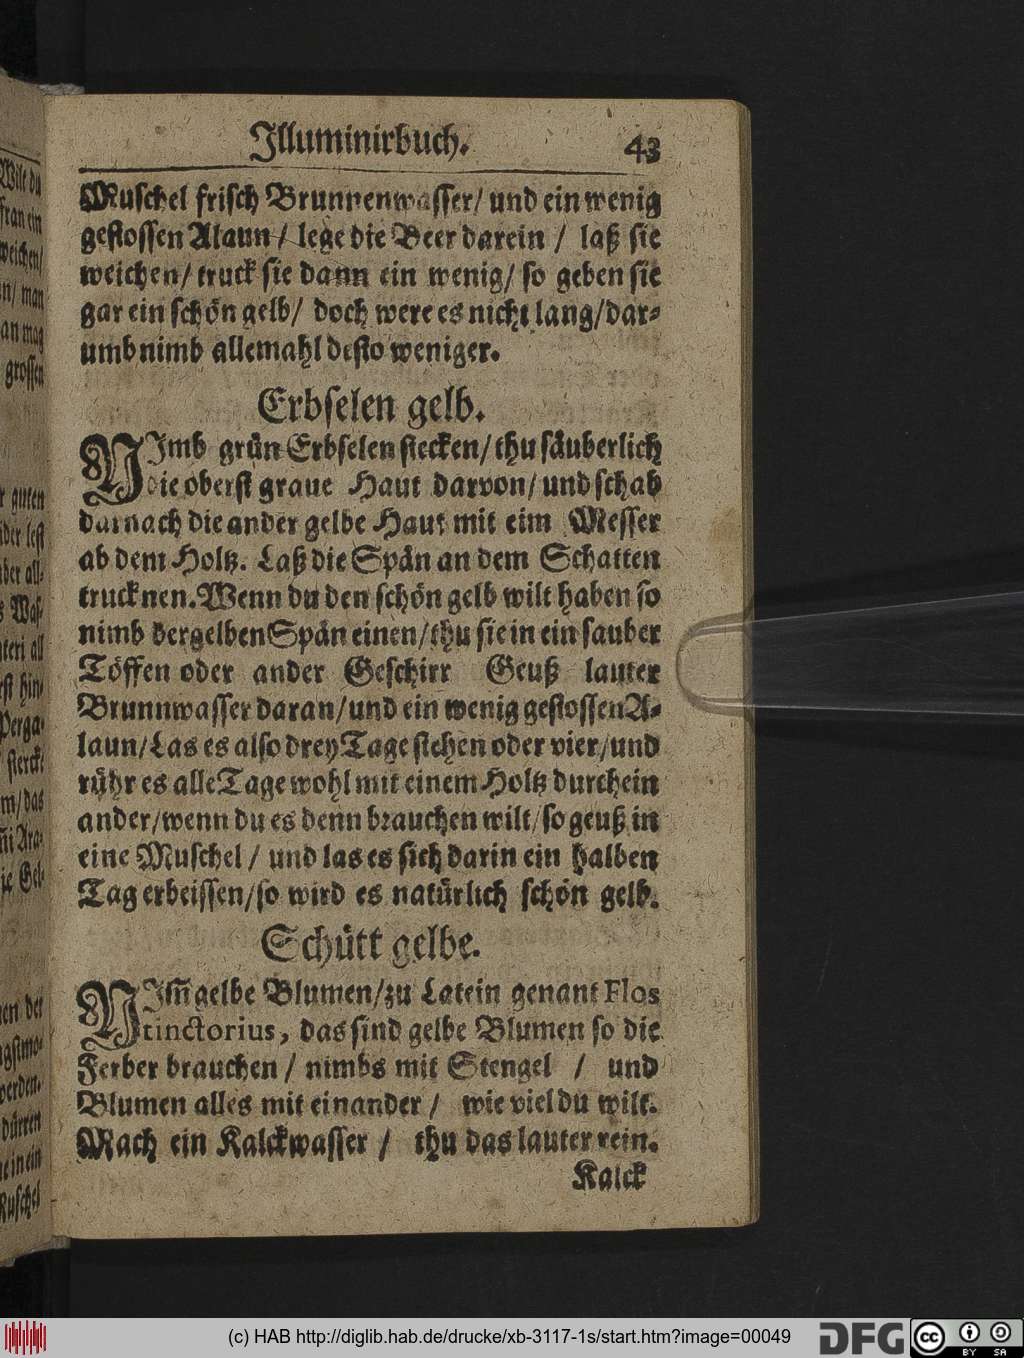 Illuminirbuch. 43
Muschel frisch Brunnenwasser/ und ein wenig
gestossen Alaun/ lege die Beer darein / laß sie
weichen/ truck sie dann ein wenig/ so geben sie
gar ein schön gelb/ doch were es nicht lang/dar-
umb nimb allemahl desto weniger.
Erbselen gelb.
NImb grün Erbselen stecken/ thu säuberlich
die oberst graue Haut darvon/ und schab
darnach die ander gelbe Haut mit eim Messer
ab dem Holtz. Laß die Spän an dem Schatten
trucknen. Wenn du den schön gelb wilt haben so
nimb dergelben Spän einen/ thu sie in ein sauber
Töffen oder ander Geschirr Geuß lauter
Brunnwasser daran/ und ein wenig gestossen A-
laun/ Las es also drey Tage stehen oder vier/ und
rühr es alle Tage wohl mit einem Holtz durchein
ander/ wenn du es denn brauchen wilt/ so geuß in
eine Muschel / und las es sich darin ein halben
Tag erbeissen/ so wird es natürlich schön gelb.
Schütt gelbe.
NIm̃ gelbe Blumen/ zu Latein genant Flos
tinctorius, das sind gelbe Blumen so die
Ferber brauchen / nimbs mit Stengel / und
Blumen alles mit einander / wie viel du wilt.
Mach ein Kalckwasser / thu das lauter rein.
Kalck
Wilt du
weichen/
man
an mag
grossen
guten
Perga-
das
Ara-
Gel-
werden.
dürren
Muschel
(c) HAB http://diglib.hab.de/drucke/xb-3117-1s/start.htm?image=00049
DFG
cc
BY SA